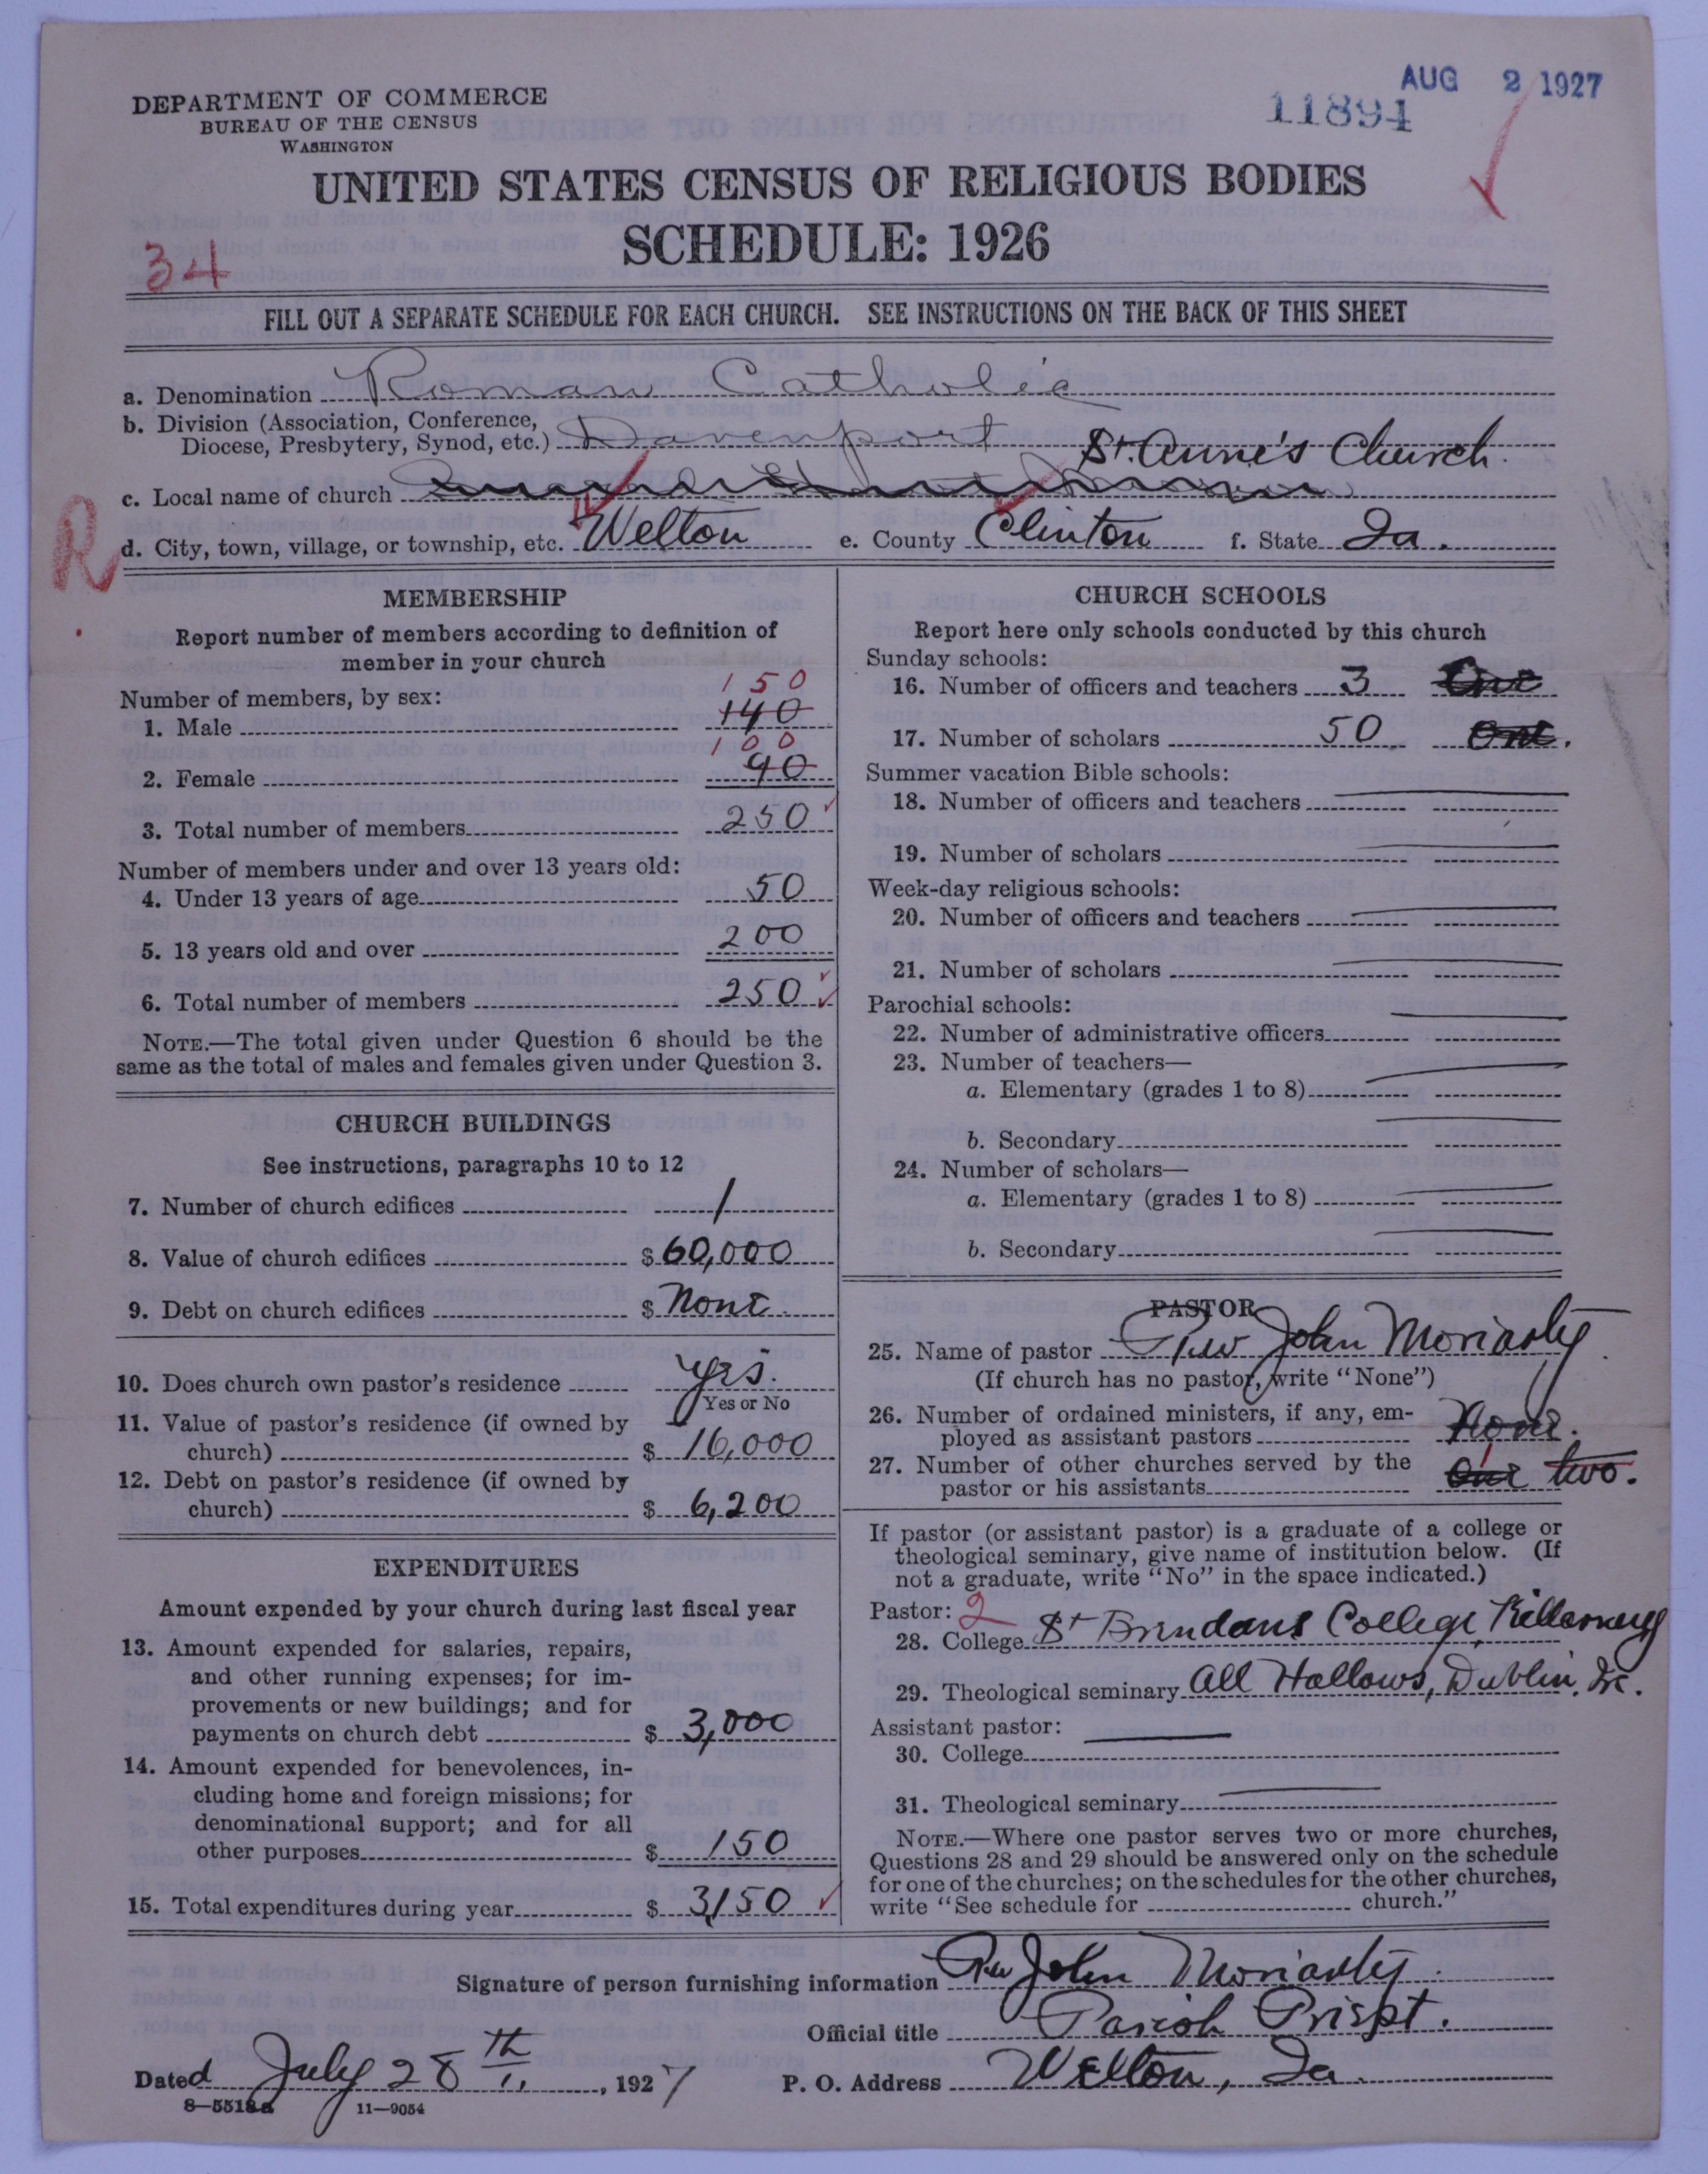 AUG 2 1927
11894
DEPARTMENT OF COMMERCE
BUREAU OF THE CENSUS
WASHINGTON
UNITED STATES CENSUS OF RELIGIOUS BODIES
SCHEDULE: 1926
34
FILL OUT A SEPARATE SCHEDULE FOR EACH CHURCH. SEE INSTRUCTIONS ON THE BACK OF THIS SHEET
a. Denomination Roman Catholic
b. Division (Association, Conference,
Diocese, Presbytery, Synod, etc.) Davenport
St. Anne's Church
c. Local name of church
R
d. City, town, village, or township, etc. Welton e. County Clinton f. State Ia.
MEMBERSHIP
Report number of members according to definition of
member in your church
Number of members, by sex:
150
1. Male 140
100
2. Female 90
3. Total number of members 250
Number of members under and over 13 years old:
4. Under 13 years of age 50
5. 13 years old and over 200
6. Total number of members 250
NOTE.—The total given under Question 6 should be the
same as the total of males and females given under Question 3.
CHURCH BUILDINGS
See instructions, paragraphs 10 to 12
7. Number of church edifices 1
8. Value of church edifices $ 60,000
9. Debt on church edifices $ None
10. Does church own pastor's residence Yes.
Yes or No
11. Value of pastor's residence (if owned by
church) $ 16,000
12. Debt on pastor's residence (if owned by
church) $ 6,200
EXPENDITURES
Amount expended by your church during last fiscal year
13. Amount expended for salaries, repairs,
and other running expenses; for im-
provements or new buildings; and for
payments on church debt $ 3,000
14. Amount expended for benevolences, in-
cluding home and foreign missions; for
denominational support; and for all
other purposes $ 150
15. Total expenditures during year $ 3,150
CHURCH SCHOOLS
Report here only schools conducted by this church
Sunday schools:
16. Number of officers and teachers 3 One
17. Number of scholars 50 One.
Summer vacation Bible schools:
18. Number of officers and teachers
19. Number of scholars
Week-day religious schools:
20. Number of officers and teachers
21. Number of scholars
Parochial schools:
22. Number of administrative officers
23. Number of teachers—
a. Elementary (grades 1 to 8)
b. Secondary
24. Number of scholars—
a. Elementary (grades 1 to 8)
b. Secondary
PASTOR
25. Name of pastor Rev John Moriarty
(If church has no pastor, write "None")
26. Number of ordained ministers, if any, em-
ployed as assistant pastors None.
27. Number of other churches served by the
pastor or his assistants 1 One two.
If pastor (or assistant pastor) is a graduate of a college or
theological seminary, give name of institution below. (If
not a graduate, write "No" in the space indicated.)
Pastor: 2
28. College St Brendans College, Killarney
29. Theological seminary All Hallows, Dublin, Ire.
Assistant pastor:
30. College
31. Theological seminary
NOTE.—Where one pastor serves two or more churches,
Questions 28 and 29 should be answered only on the schedule
for one of the churches; on the schedules for the other churches,
write "See schedule for church."
Signature of person furnishing information Rev John Moriarty
Official title Parish Priest.
Dated July 28th, 1927 P. O. Address Welton, Ia.
8—5518a 11—9054